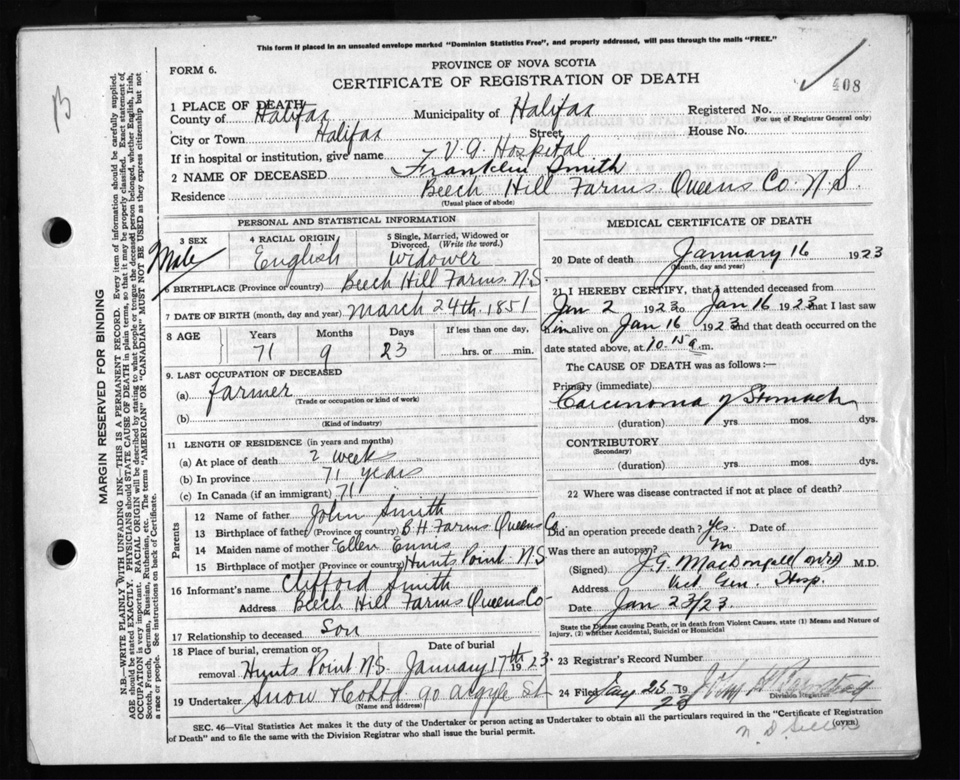 This form if placed in an unsealed envelope marked "Dominion Statistics Free", and properly addressed, will pass through the mails "FREE."
FORM 6.
PROVINCE OF NOVA SCOTIA
CERTIFICATE OF REGISTRATION OF DEATH
408
B
1 PLACE OF DEATH
County of Halifax Municipality of Halifax Registered No.
(For use of Registrar General only)
City or Town Halifax Street House No.
If in hospital or institution, give name V.G. Hospital
2 NAME OF DECEASED Franklin Smith
Residence Beech Hill Farms. Queens Co. N.S.
(Usual place of abode)
PERSONAL AND STATISTICAL INFORMATION
3 SEX Male
4 RACIAL ORIGIN English
5 Single, Married, Widowed or Divorced. (Write the word.) Widower
6 BIRTHPLACE (Province or country) Beech Hill Farms. N.S.
7 DATE OF BIRTH (month, day and year) March 24th. 1851
8 AGE Years 71 Months 9 Days 23 If less than one day, hrs. or min.
9. LAST OCCUPATION OF DECEASED
(a) farmer
(Trade or occupation or kind of work)
(b)
(Kind of industry)
11 LENGTH OF RESIDENCE (in years and months)
(a) At place of death 2 weeks
(b) In province 71 years
(c) In Canada (if an immigrant) 71
Parents
12 Name of father John Smith
13 Birthplace of father (Province or country) B.H. Farms Queens Co
14 Maiden name of mother Ellen Ennis
15 Birthplace of mother (Province or country) Hunts Point. N.S
16 Informant's name Clifford Smith
Address Beech Hill Farms Queens Co
17 Relationship to deceased Son
18 Place of burial, cremation or removal Hunts Point N.S. Date of burial January 17th 1923.
19 Undertaker Snow & Co Ltd. 90 Argyle St
(Name and address)
MEDICAL CERTIFICATE OF DEATH
20 Date of death January 16 1923
(Month, day and year)
21 I HEREBY CERTIFY, that I attended deceased from
Jan 2 1923 to Jan 16 1923 that I last saw
him alive on Jan 16 1923 and that death occurred on the
date stated above, at 10.15 a.m.
The CAUSE OF DEATH was as follows:—
Primary (immediate)
Carcinoma of Stomach
(duration) yrs mos. dys.
CONTRIBUTORY
(Secondary)
(duration) yrs. mos. dys.
22 Where was disease contracted if not at place of death?
Did an operation precede death? Yes. Date of
Was there an autopsy?
(Signed) J.G. MacDougald M.D.
Address Vict. Gen. Hosp.
Date Jan 23/23.
State the Disease causing Death, or in death from Violent Causes, state (1) Means and Nature of Injury, (2) whether Accidental, Suicidal or Homicidal
23 Registrar's Record Number
24 Filed 1923
Division Registrar
SEC. 46—Vital Statistics Act makes it the duty of the Undertaker or person acting as Undertaker to obtain all the particulars required in the "Certificate of Registration
of Death" and to file the same with the Division Registrar who shall issue the burial permit.
(OVER)
MARGIN RESERVED FOR BINDING
N.B.—WRITE PLAINLY WITH UNFADING INK—THIS IS A PERMANENT RECORD. Every item of information should be carefully supplied.
AGE should be stated EXACTLY. PHYSICIANS should STATE CAUSE OF DEATH in plain terms, so that it may be properly classified. Exact statement of
OCCUPATION is very important. RACIAL ORIGIN will be described by stating to what people or tongue the deceased person belonged, whether English, Irish,
Scotch, French, German, Russian, Ruthenian, etc. The terms "AMERICAN" or "CANADIAN" MUST NOT BE USED as they express citizenship but not
a race or people. See instructions on back of Certificate.